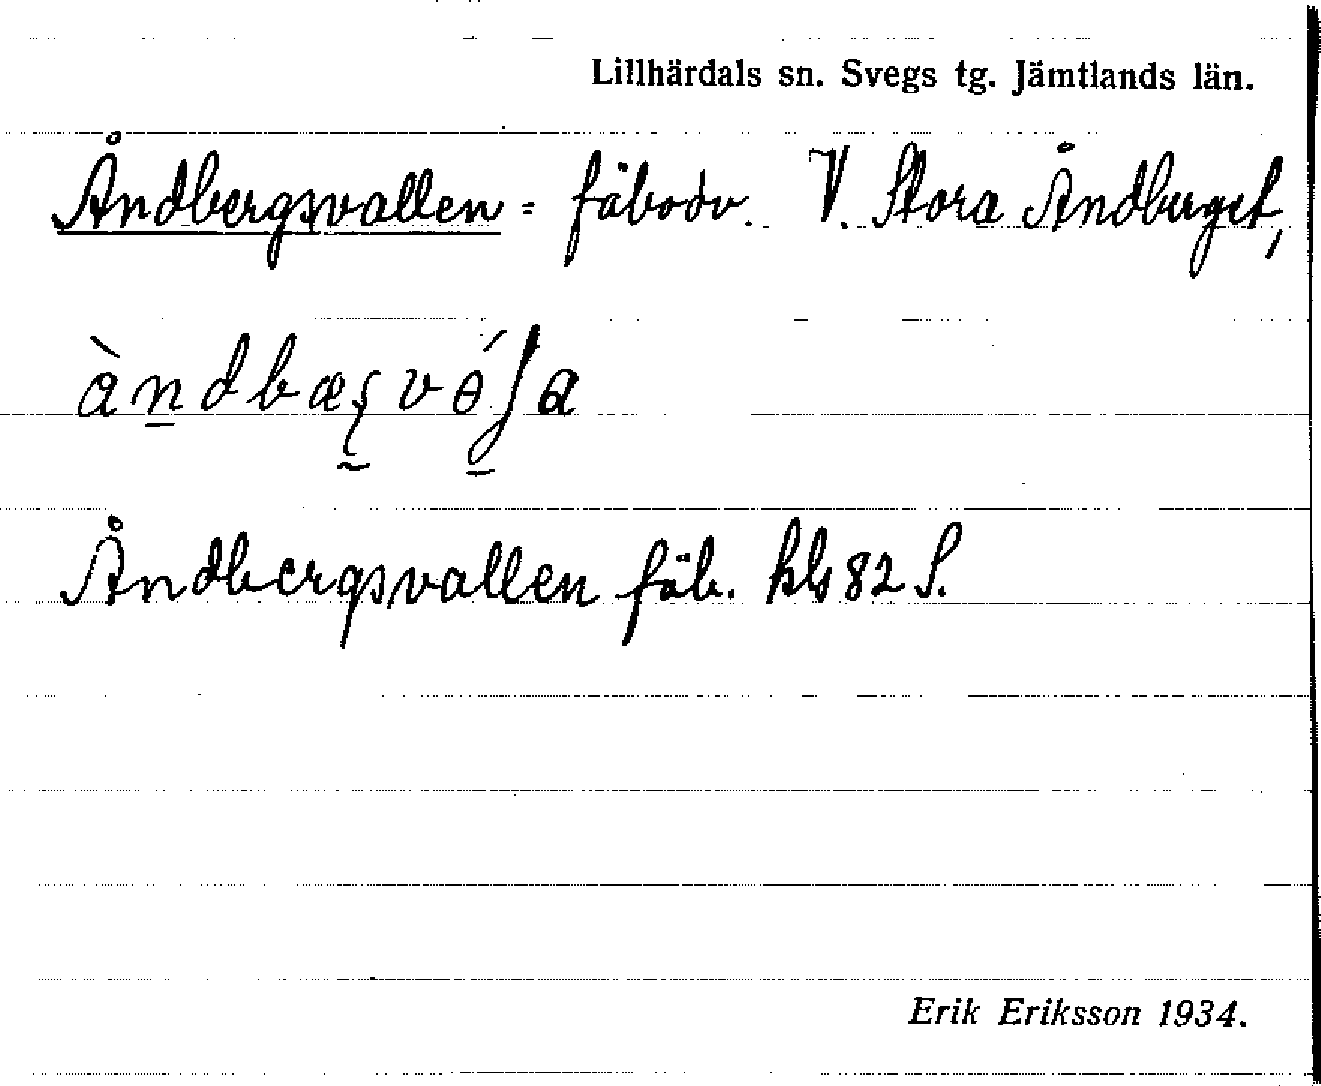 Lillhärdals sn. Svegs tg. Jämtlands län.
Åndbergsvallen = fäbodv. V. Stora Åndberget,
Åndbergsvallen fäb. kbl 82 S.
Erik Eriksson 1934.